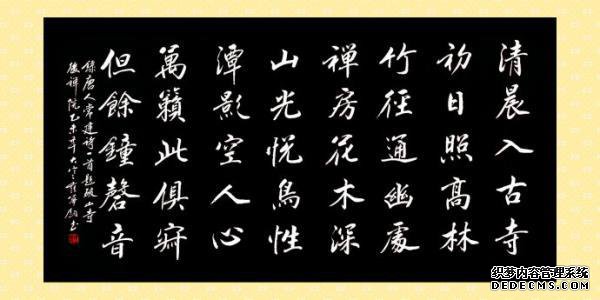 清晨入古寺
初日照高林
竹徑通幽處
禪房花木深
山光悦鳥性
潭影空人心
萬籟此俱寂
但餘鐘磬音
錄唐人常建詩一首題破山寺
後禪院乙未年大
书
织梦内容管理系统
DEDECMS.COM